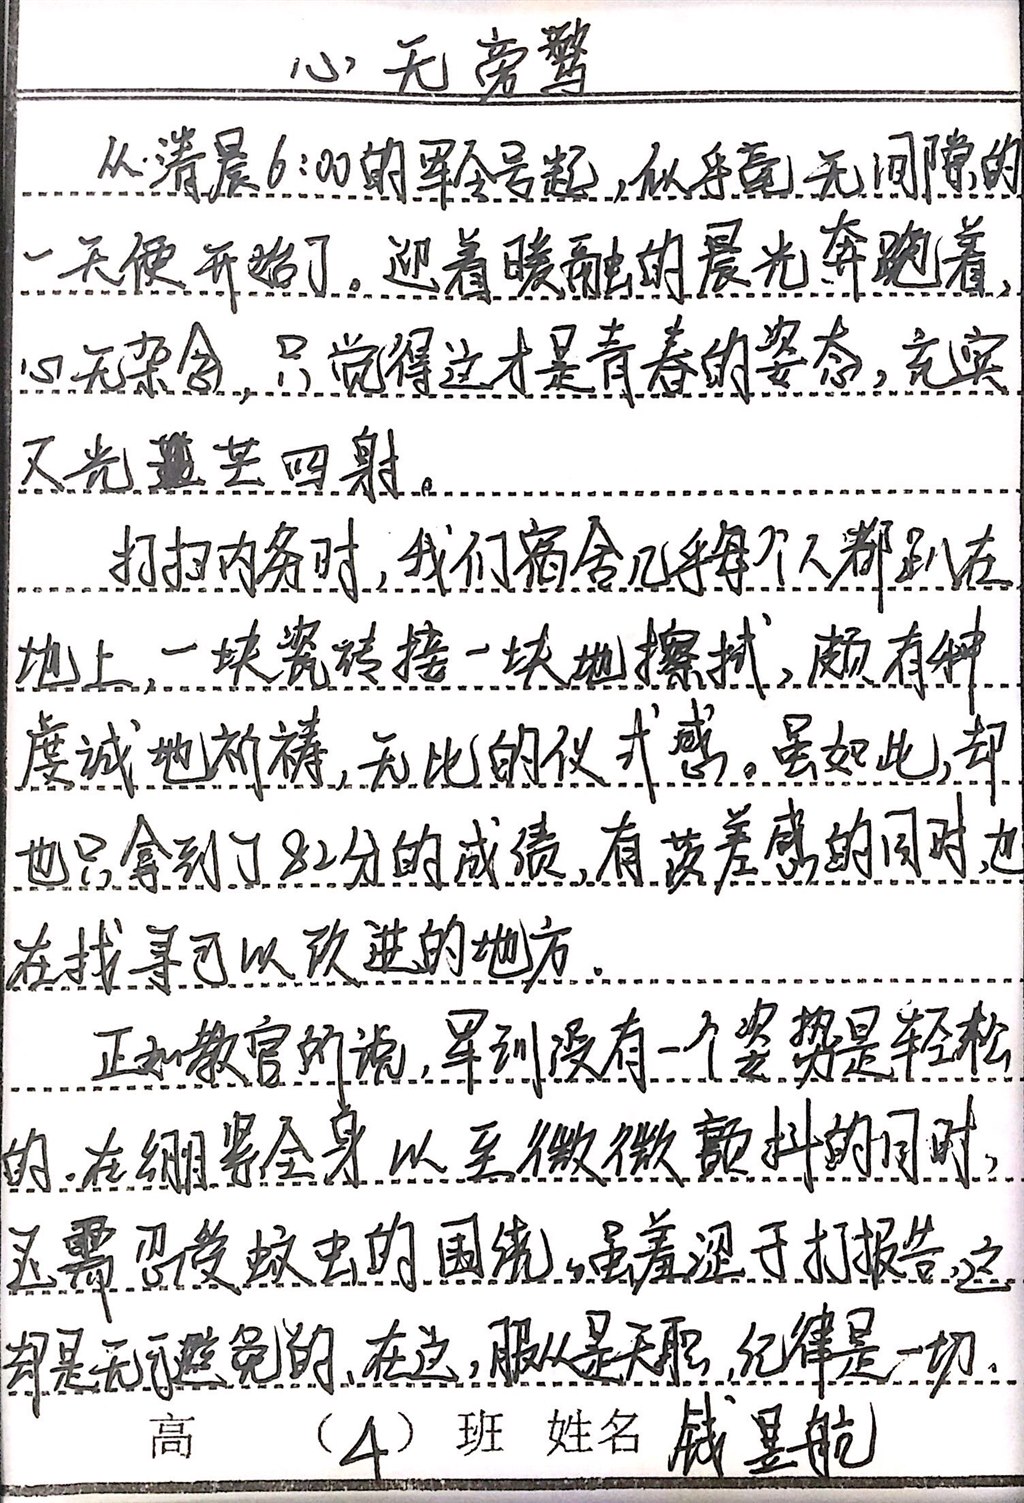 心无旁骛
从清晨6:00的军令号起,似乎毫无间隙的
一天便开始了。迎着暖融的晨光奔跑着,
心无杂念,只觉得这才是青春的姿态,充实
又光芒四射。
打扫内务时,我们宿舍几乎每个人都趴在
地上,一块瓷砖接一块地擦拭,颇有种
虔诚地祈祷,无比的仪式感。虽如此,却
也只拿到了82分的成绩,有落差感的同时,也
在找寻可以改进的地方.
正如教官所说,军训没有一个姿势是轻松
的.在绷紧全身以至微微颤抖的同时,
还需忍受蚊虫的围绕,虽羞涩于打报告,这
却是无可避免的.在这,服从是天职,纪律是一切.
高 (4)班 姓名 钱昱航